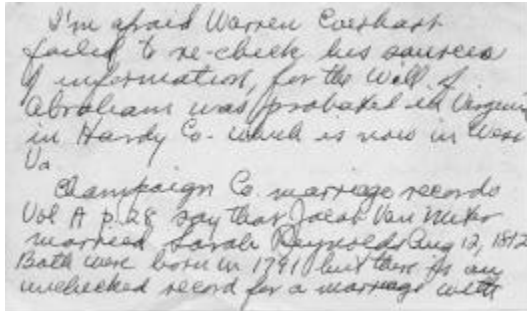 I'm afraid Warren Everhart
failed to re-check his sources
of information, for the Will of
Abraham was probated in Virginia
in Hardy Co- which is now in West
Va.
Champaign Co. marriage records
Vol A p. 28 say that Jacob Van Meter
married Sarah Reynolds Aug 12, 1812
Both were born in 1791 but there is an
unchecked record for a marriage with